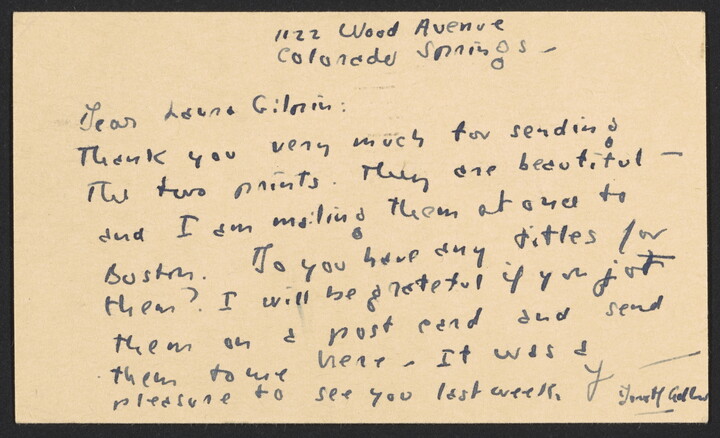 1122 Wood Avenue
Colorado Springs -
Dear Laura Gilpin:
Thank you very much for sending
the two prints. They are beautiful -
and I am mailing them at once to
Boston. Do you have any titles for
them? I will be grateful if you jot
them on a post card and send
them to me here - It was a
pleasure to see you last week.